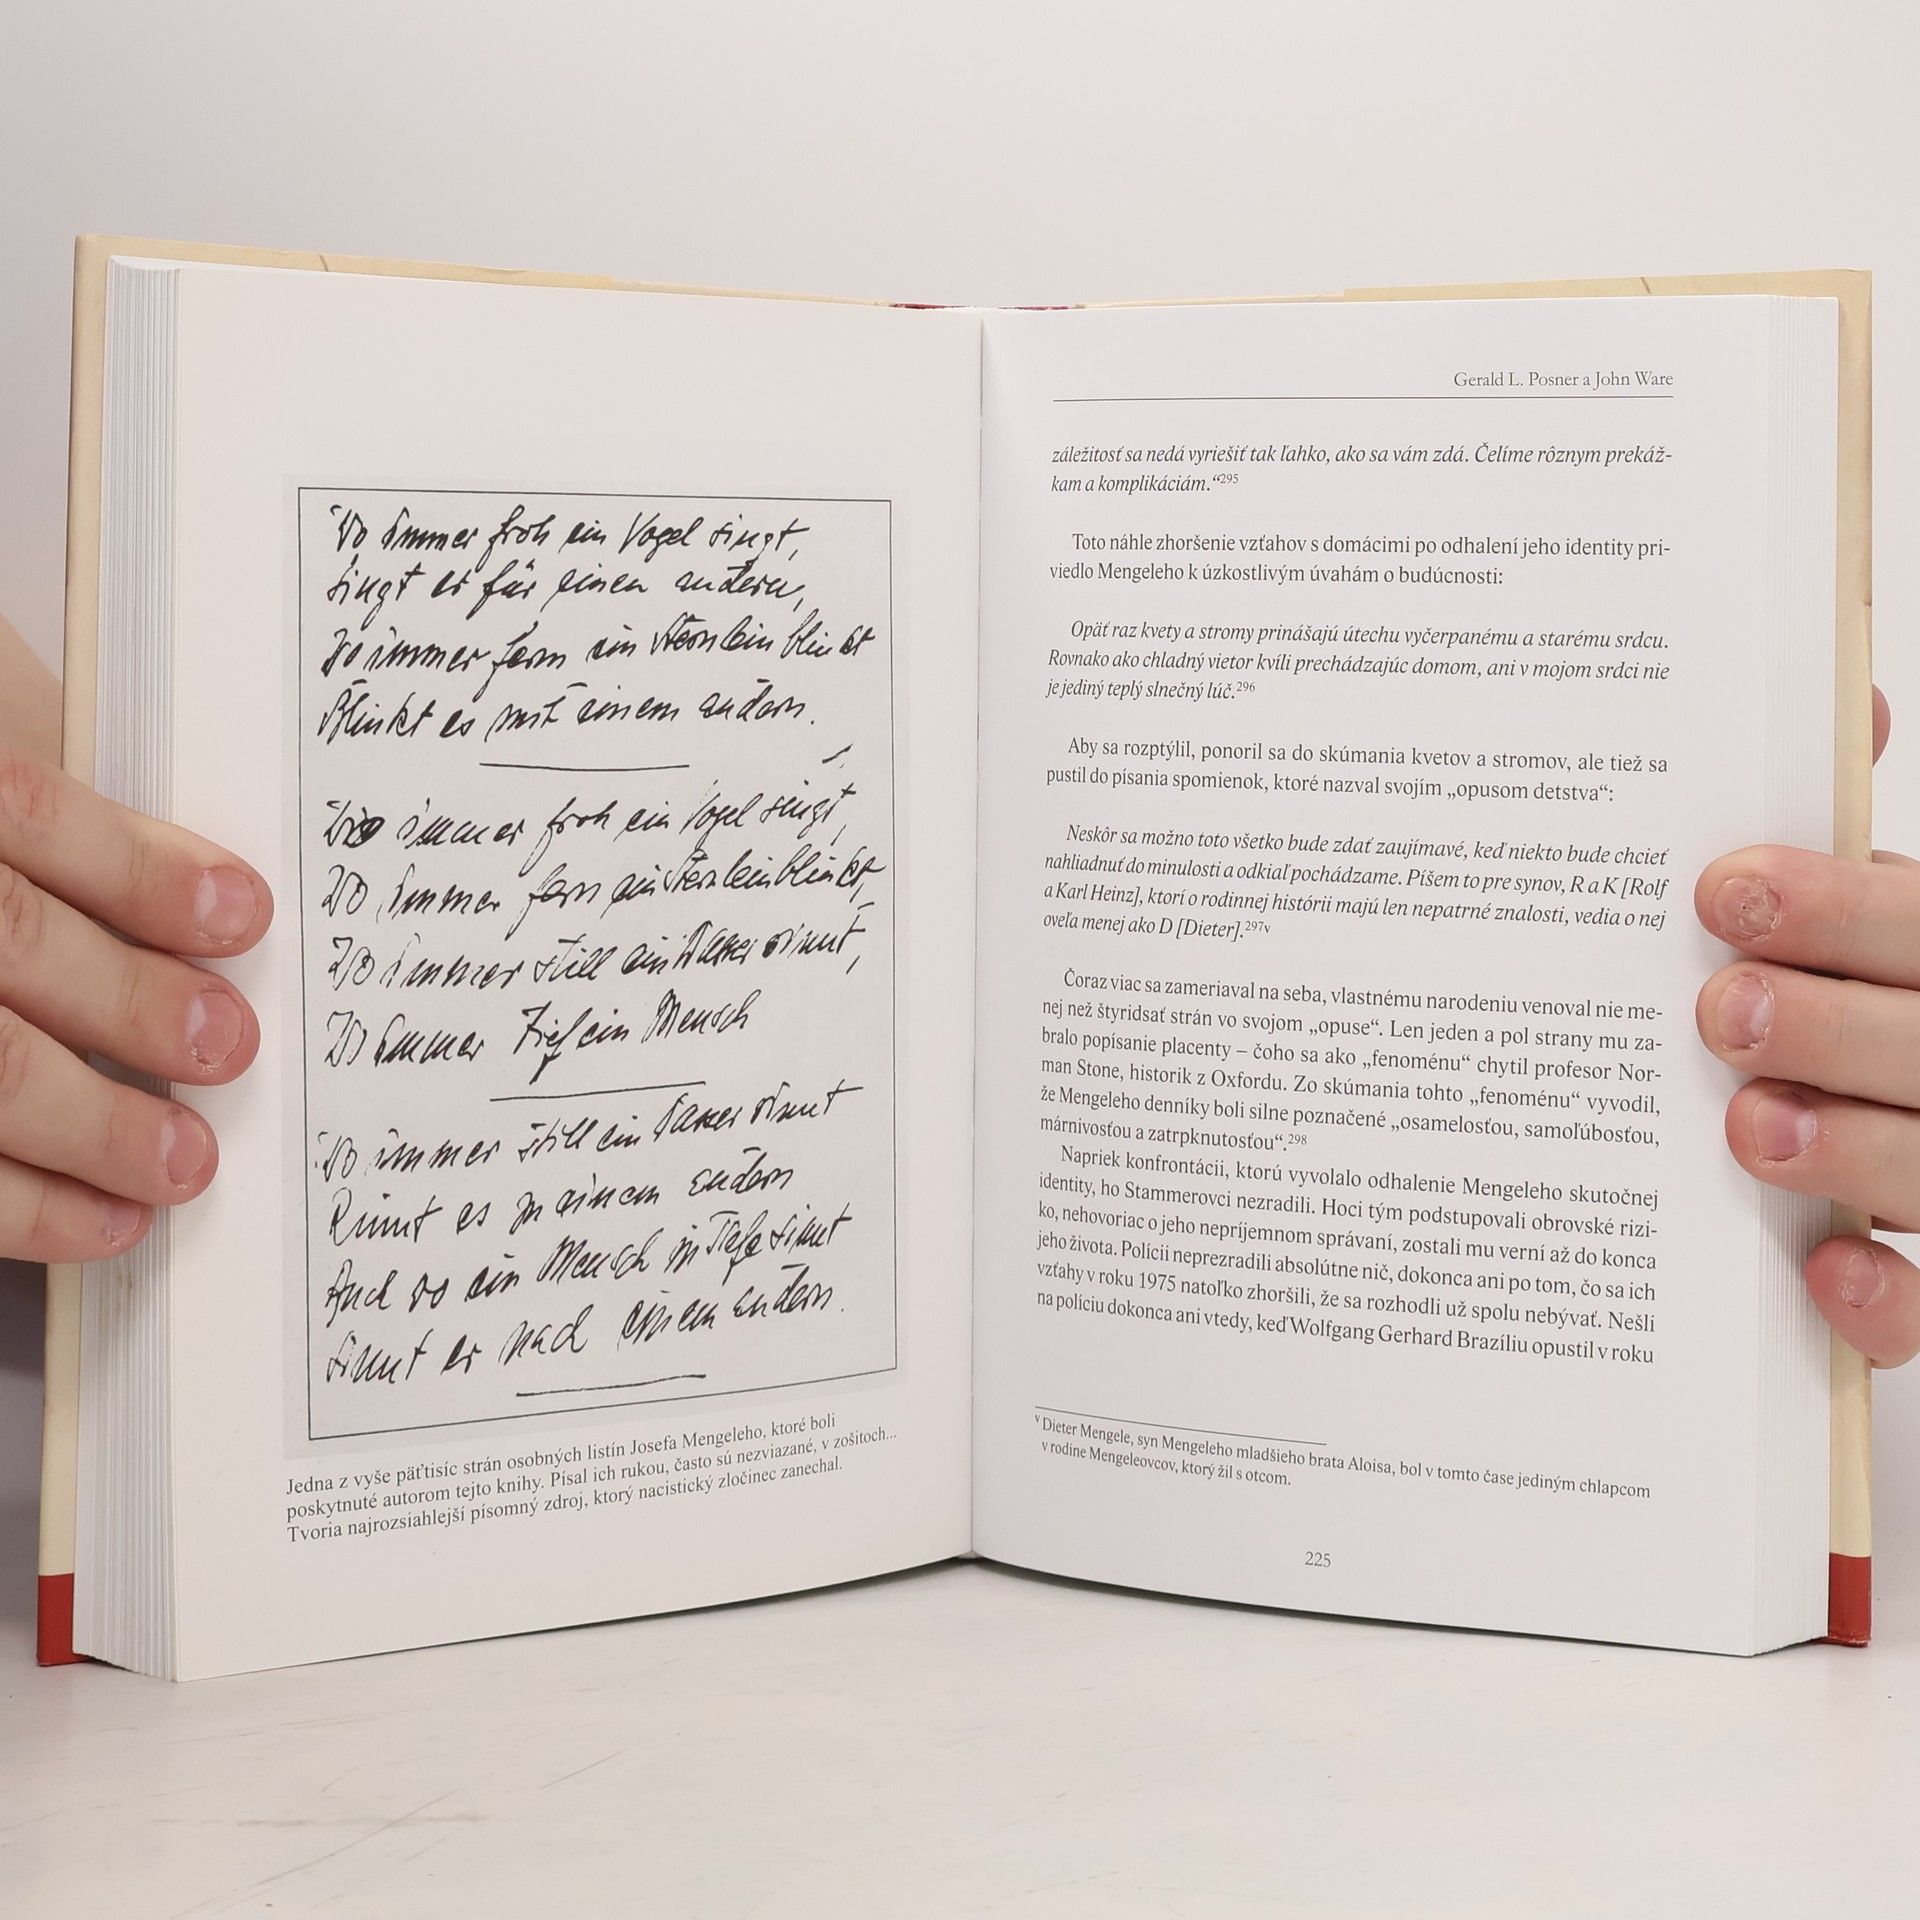 Wo immer froh ein Vogel singt,
singt er für einen andern,
Wo immer fern ein Sternlein blinkt
Blinkt es mit einem andern.
Wo immer froh ein Vogel singt,
Wo immer fern ein Sternlein blinkt,
Wo immer still ein Wasser rinnt,
Wo immer Tief ein Mensch
Wo immer still ein Wasser rinnt
Rinnt es zu einem andern
Auch wo ein Mensch in Tiefe sinnt
sinnt er nach einem andern.
Jedna z vyše päťtisíc strán osobných listín Josefa Mengeleho, ktoré boli
poskytnuté autorom tejto knihy. Písal ich rukou, často sú nezviazané, v zošitoch...
Tvoria najrozsiahlejší písomný zdroj, ktorý nacistický zločinec zanechal.
Gerald L. Posner a John Ware
záležitosť sa nedá vyriešiť tak ľahko, ako sa vám zdá. Čelíme rôznym prekáž-
kam a komplikáciám.“295
Toto náhle zhoršenie vzťahov s domácimi po odhalení jeho identity pri-
viedlo Mengeleho k úzkostlivým úvahám o budúcnosti:
Opäť raz kvety a stromy prinášajú útechu vyčerpanému a starému srdcu.
Rovnako ako chladný vietor kvíli prechádzajúc domom, ani v mojom srdci nie
je jediný teplý slnečný lúč.296
Aby sa rozptýlil, ponoril sa do skúmania kvetov a stromov, ale tiež sa
pustil do písania spomienok, ktoré nazval svojím „opusom detstva“:
Neskôr sa možno toto všetko bude zdať zaujímavé, keď niekto bude chcieť
nahliadnuť do minulosti a odkiaľ pochádzame. Píšem to pre synov, R a K [Rolf
a Karl Heinz], ktorí o rodinnej histórii majú len nepatrné znalosti, vedia o nej
oveľa menej ako D [Dieter].297v
Čoraz viac sa zameriaval na seba, vlastnému narodeniu venoval nie me-
nej než štyridsať strán vo svojom „opuse“. Len jeden a pol strany mu za-
bralo popísanie placenty – čoho sa ako „fenoménu“ chytil profesor Nor-
man Stone, historik z Oxfordu. Zo skúmania tohto „fenoménu“ vyvodil,
že Mengeleho denníky boli silne poznačené „osamelosťou, samoľúbosťou,
márnivosťou a zatrpknutosťou“.298
Napriek konfrontácii, ktorú vyvolalo odhalenie Mengeleho skutočnej
identity, ho Stammerovci nezradili. Hoci tým podstupovali obrovské rizi-
ko, nehovoriac o jeho nepríjemnom správaní, zostali mu verní až do konca
jeho života. Polícii neprezradili absolútne nič, dokonca ani po tom, čo sa ich
vzťahy v roku 1975 natoľko zhoršili, že sa rozhodli už spolu nebývať. Nešli
na políciu dokonca ani vtedy, keď Wolfgang Gerhard Brazíliu opustil v roku
v Dieter Mengele, syn Mengeleho mladšieho brata Aloisa, bol v tomto čase jediným chlapcom
v rodine Mengeleovcov, ktorý žil s otcom.
225